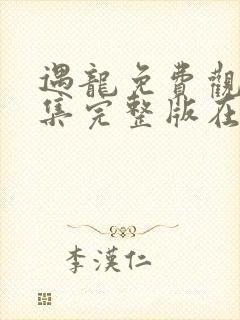 遇龍免費觀
集完整版在
李漢仁